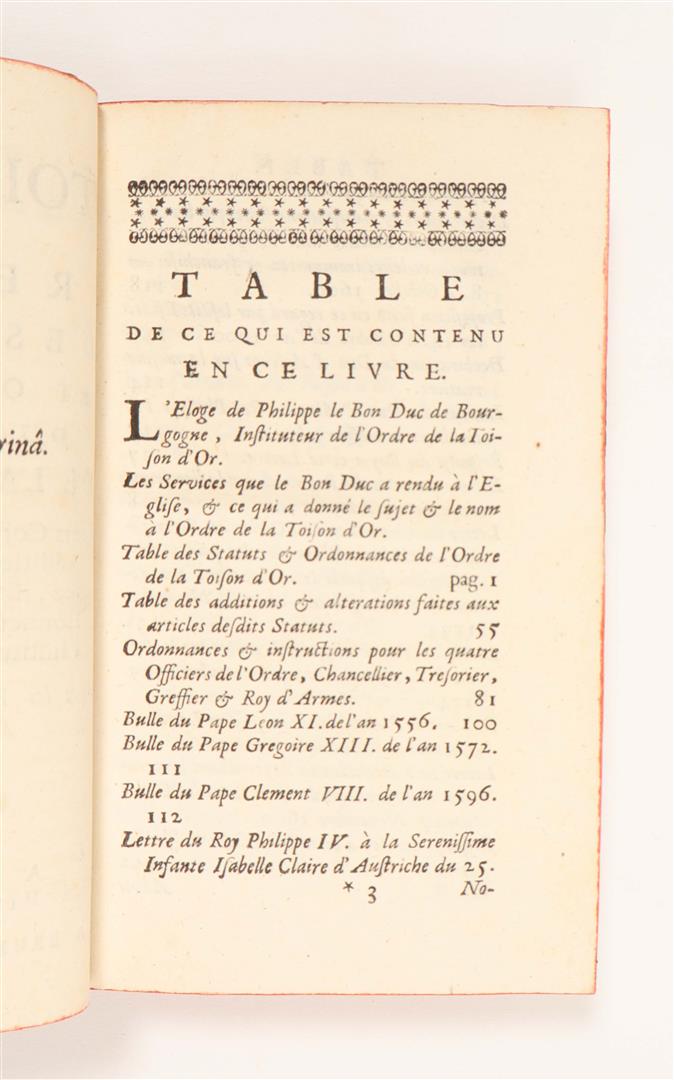 TABLE
DE CE QUI EST CONTENU
EN CE LIVRE.
L'Eloge de Philippe le Bon Duc de Bour-
gogne, Inſtituteur de l'Ordre de la Toi-
ſon d'Or.
Les Services que le Bon Duc a rendu à l'E-
gliſe, & ce qui a donné le ſujet & le nom
à l'Ordre de la Toiſon d'Or.
Table des Statuts & Ordonnances de l'Ordre
de la Toiſon d'Or. pag. 1
Table des additions & alterations faites aux
articles deſdits Statuts. 55
Ordonnances & inſtructions pour les quatre
Officiers de l'Ordre, Chancellier, Treſorier,
Greffier & Roy d'Armes. 81
Bulle du Pape Leon XI. de l'an 1556. 100
Bulle du Pape Gregoire XIII. de l'an 1572.
111
Bulle du Pape Clement VIII. de l'an 1596.
112
Lettre du Roy Philippe IV. à la Sereniſſime
Infante Iſabelle Claire d'Auſtriche du 25.
* 3 No-
rinâ.